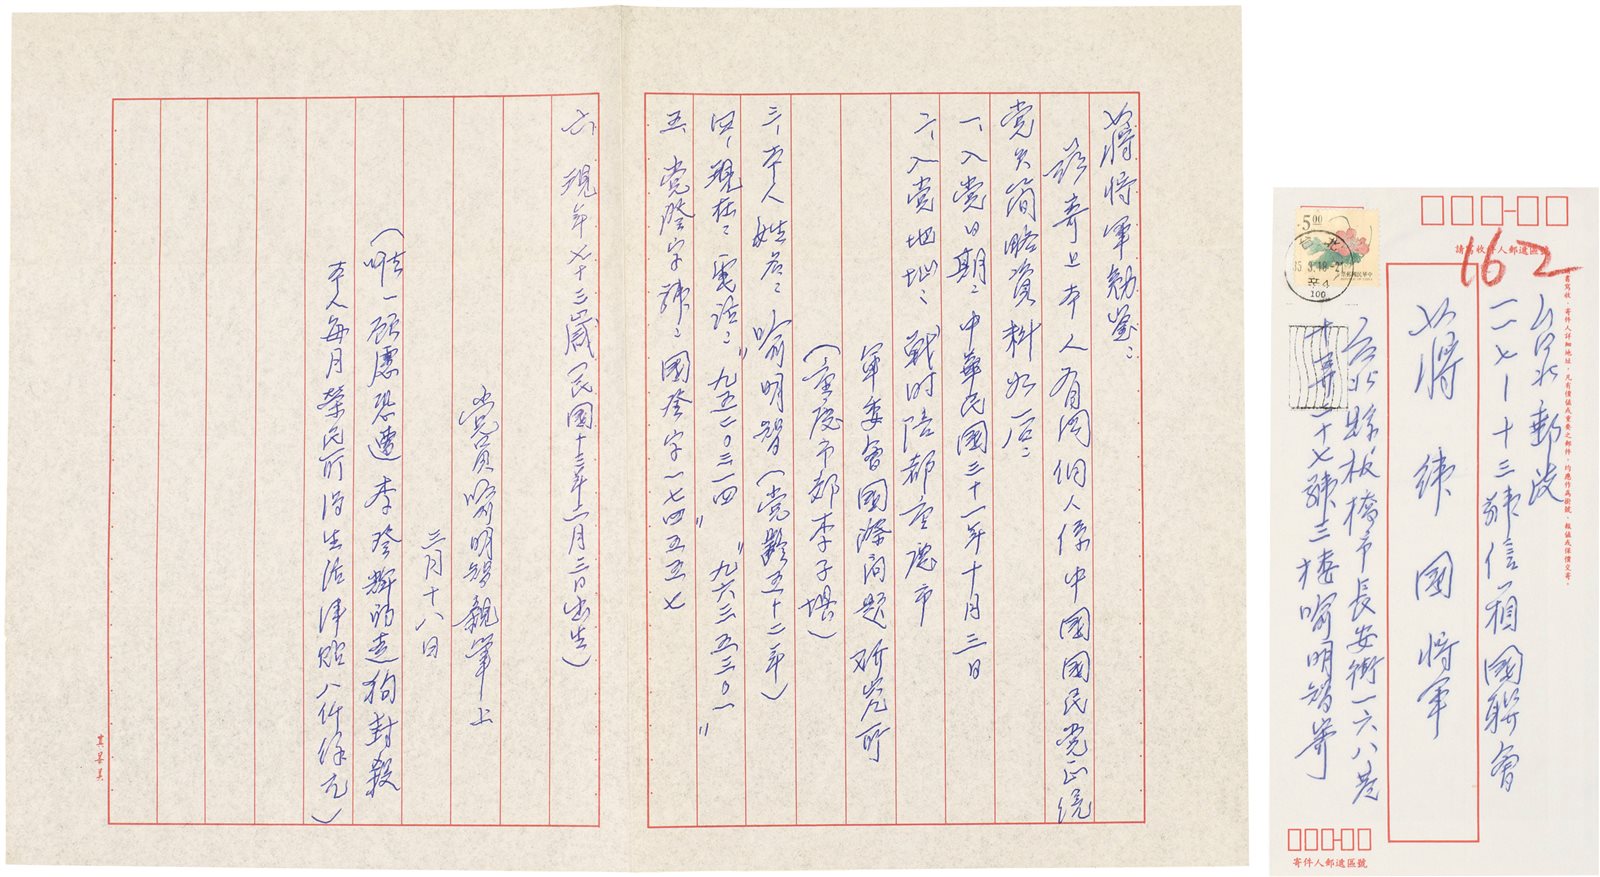 蔣將軍勛鑒：
茲寄上本人有關個人係中國國民党正統
党員簡略資料如后：
一、入党日期：中華民國三十一年十月三日
二、入党地址：戰时陪都重慶市
軍委會國際问题研究所
（重慶市郊李子壩）
三、本人姓名：喻明智（党齡五十二年）
四、現在：電話："九五二〇三一四""九六三五三〇一"
五、党證字號：國登字一七四五五七
六、現年七十三歲（民國十三年二月三日出生）
党員喻明智親筆上
三月十八日
（唯一顧慮恐遭李登輝的走狗封殺
本人每月榮民所得生活津貼八仟餘元）
5.00
中華民國郵票
台北
85.3.18-21
100
請寫收件人郵遞區號
162
台北郵政
一一七-十三號信箱國聯會
蔣緯國將軍
台北縣板橋市長安街一六八巷
十弄二十七號三樓喻明智寄
寄件人郵遞區號